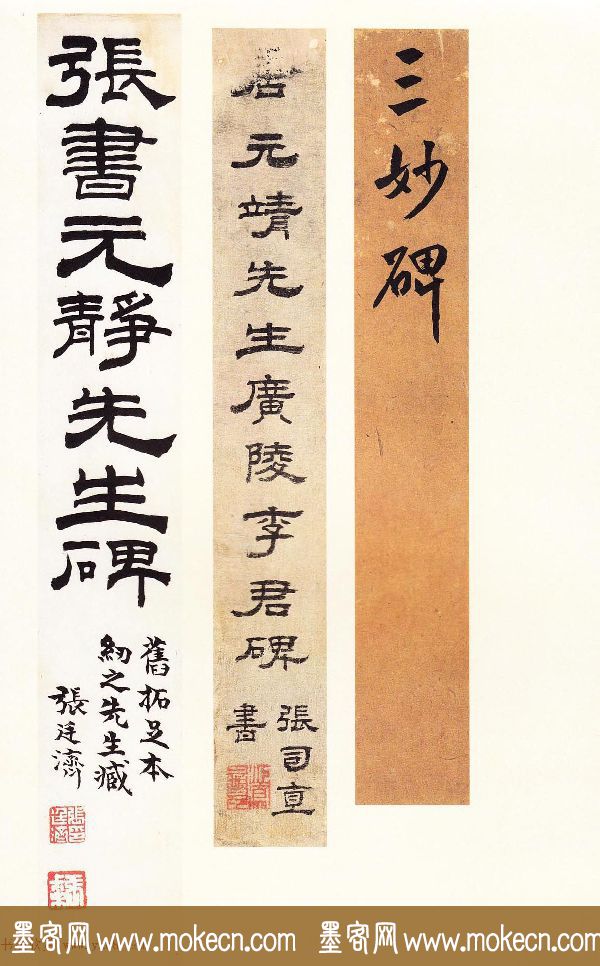 三妙碑
元靖先生廣陵李君碑
張司直
書
張書元靜先生碑
舊拓足本
紉之先生藏
張廷濟
墨客网 www.mokecn.com 墨客网 www.mokecn.com